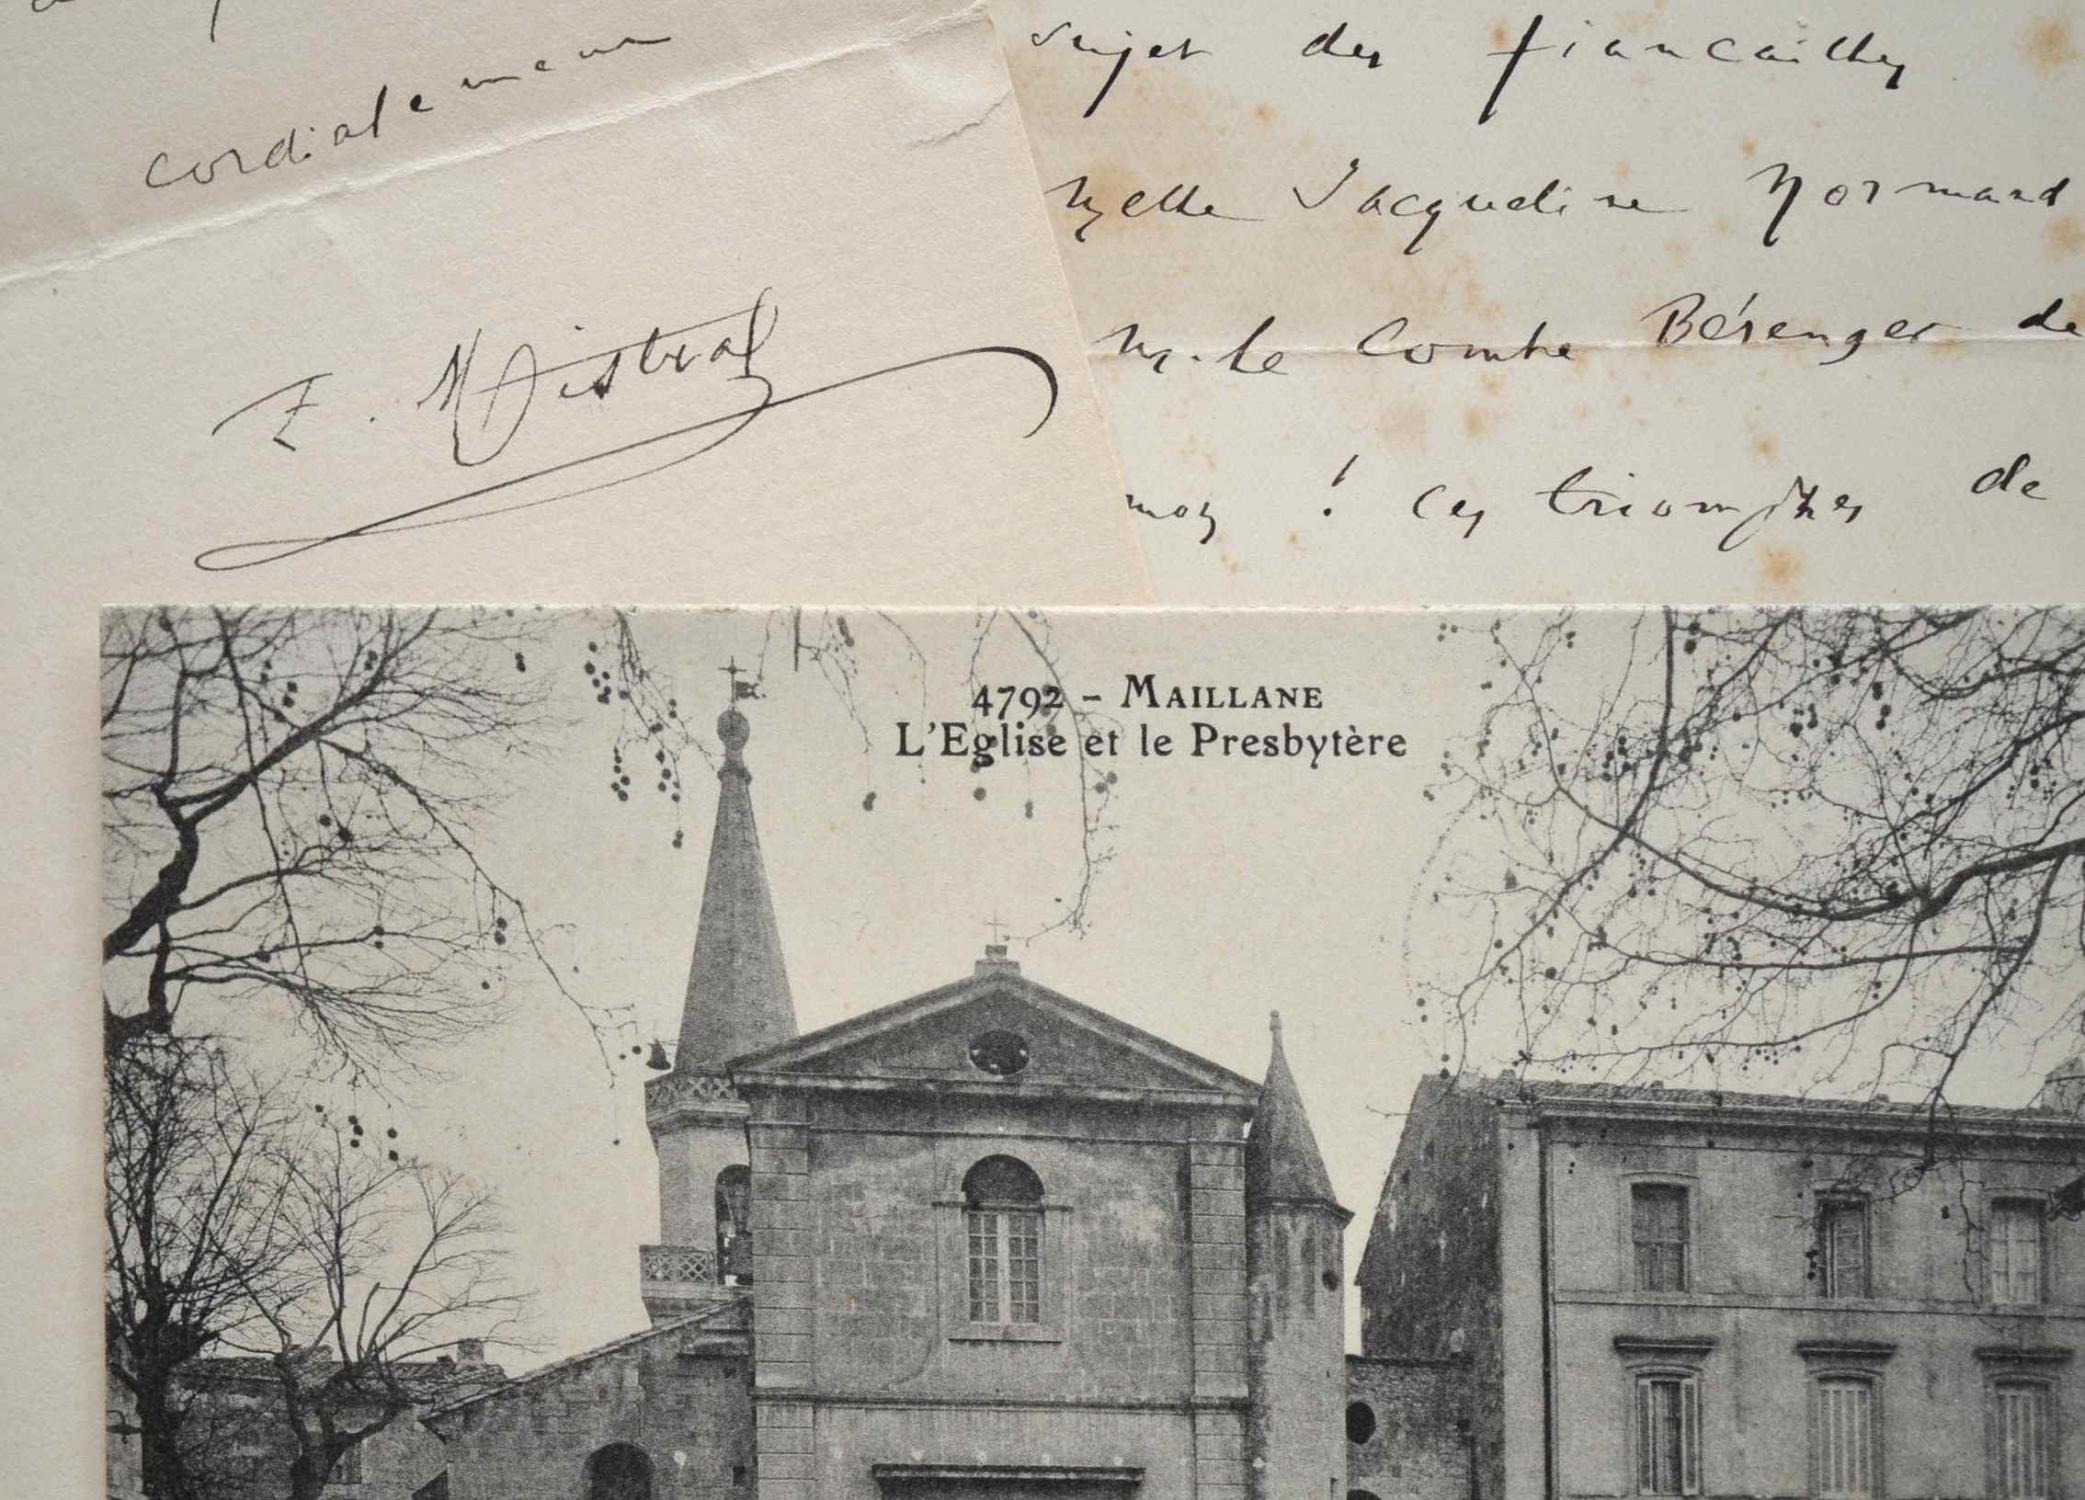 cordialement
F. Mistral
sujet des fiançailles
Melle Jacqueline Normand
M. le Comte Bérenger de
! ces triomphes de
4792 - MAILLANE
L'Eglise et le Presbytère